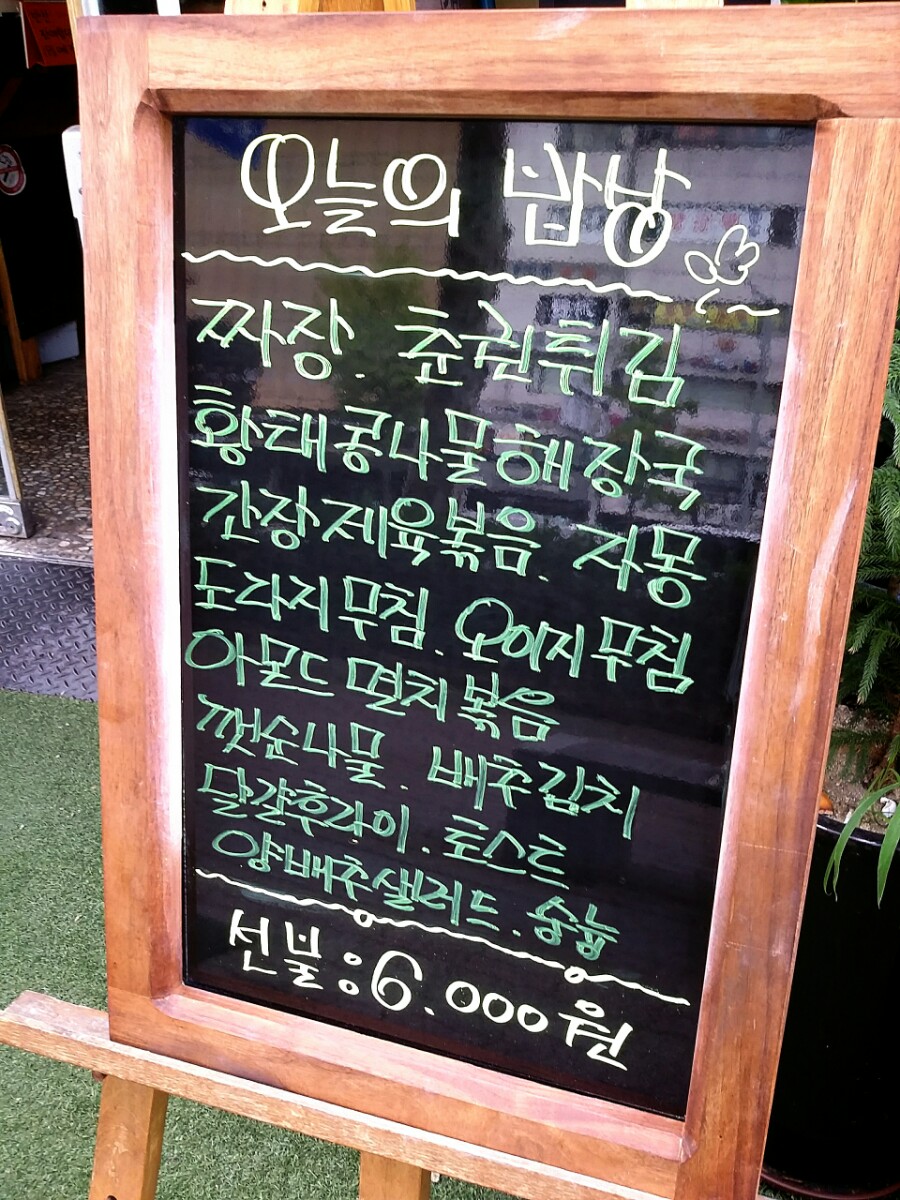 오늘의 밥상
짜장. 춘권튀김
황태콩나물해장국
간장제육볶음. 자몽
도라지무침. 오이지무침
아몬드멸치볶음
깻순나물. 배추김치
달걀후라이. 토스트
양배추샐러드. 숭늉
선불:6.000원